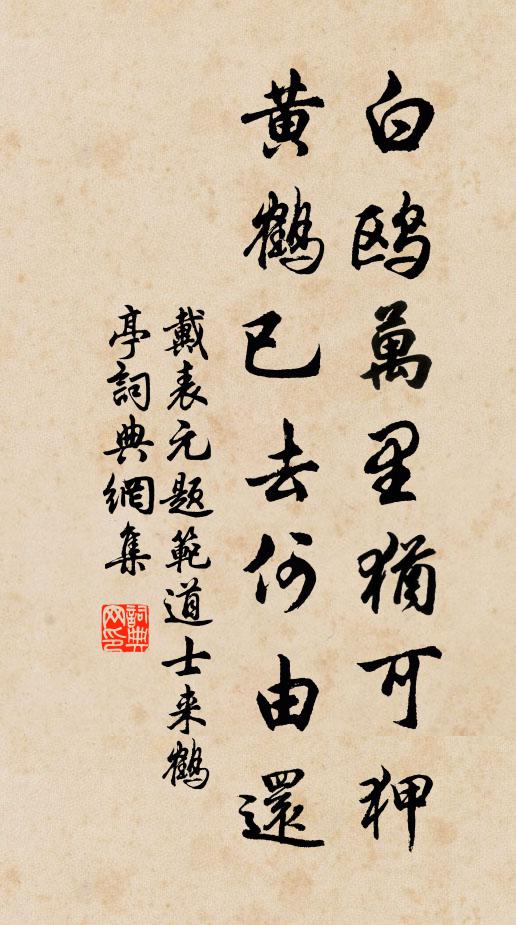 白鷗萬里猶可狎
黃鶴已去何由還
戴表元題範道士来鶴
亭詞典網集
詞典
网印